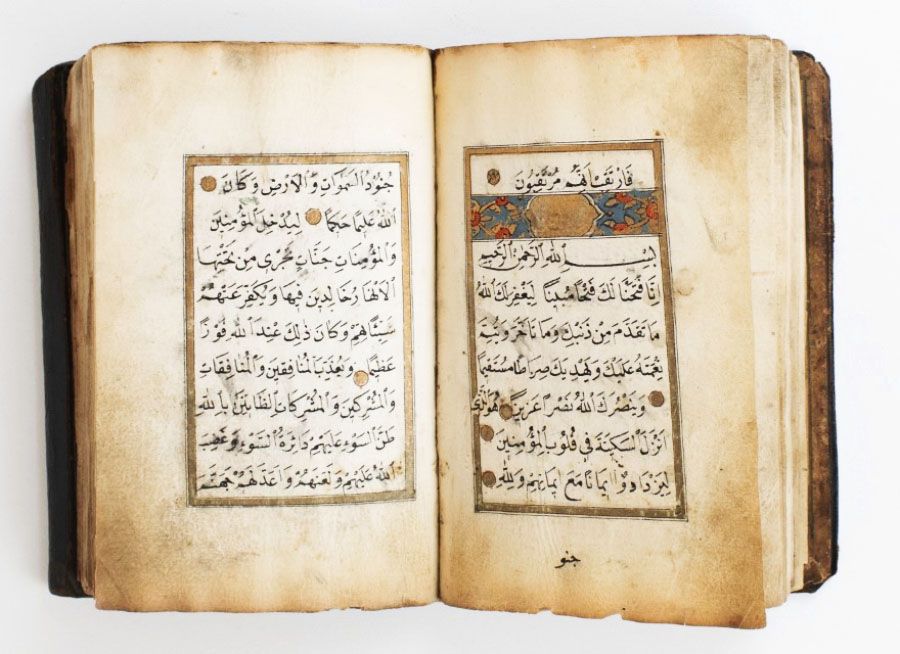 فَارْتَقِبْ اِنَّهُمْ مُرْتَقِبُونَ
بِسْمِ اللهِ الرَّحْمٰنِ الرَّحِيمِ
اِنَّا فَتَحْنَا لَكَ فَتْحًا مُبِينًا لِيَغْفِرَ لَكَ اللهُ
مَا تَقَدَّمَ مِنْ ذَنْبِكَ وَمَا تَاَخَّرَ وَيُتِمَّ
نِعْمَتَهُ عَلَيْكَ وَيَهْدِيَكَ صِرَاطًا مُسْتَقِيمًا
وَيَنْصُرَكَ اللهُ نَصْرًا عَزِيزًا هُوَ الَّذِى
اَنْزَلَ السَّكِينَةَ فِى قُلُوبِ الْمُؤْمِنِينَ
لِيَزْدَادُوا اِيمَانًا مَعَ اِيمَانِهِمْ وَلِلّٰهِ
جنو
جُنُودُ السَّمٰوَاتِ وَالْاَرْضِ وَكَانَ
اللهُ عَلِيمًا حَكِيمًا لِيُدْخِلَ الْمُؤْمِنِينَ
وَالْمُؤْمِنَاتِ جَنَّاتٍ تَجْرِى مِنْ تَحْتِهَا
الْاَنْهَارُ خَالِدِينَ فِيهَا وَيُكَفِّرَ عَنْهُمْ
سَيِّئَاتِهِمْ وَكَانَ ذٰلِكَ عِنْدَ اللهِ فَوْزًا
عَظِيمًا وَيُعَذِّبَ الْمُنَافِقِينَ وَالْمُنَافِقَاتِ
وَالْمُشْرِكِينَ وَالْمُشْرِكَاتِ الظَّانِّينَ بِاللهِ
ظَنَّ السَّوْءِ عَلَيْهِمْ دَائِرَةُ السَّوْءِ وَغَضِبَ
اللهُ عَلَيْهِمْ وَلَعَنَهُمْ وَاَعَدَّ لَهُمْ جَهَنَّمَ